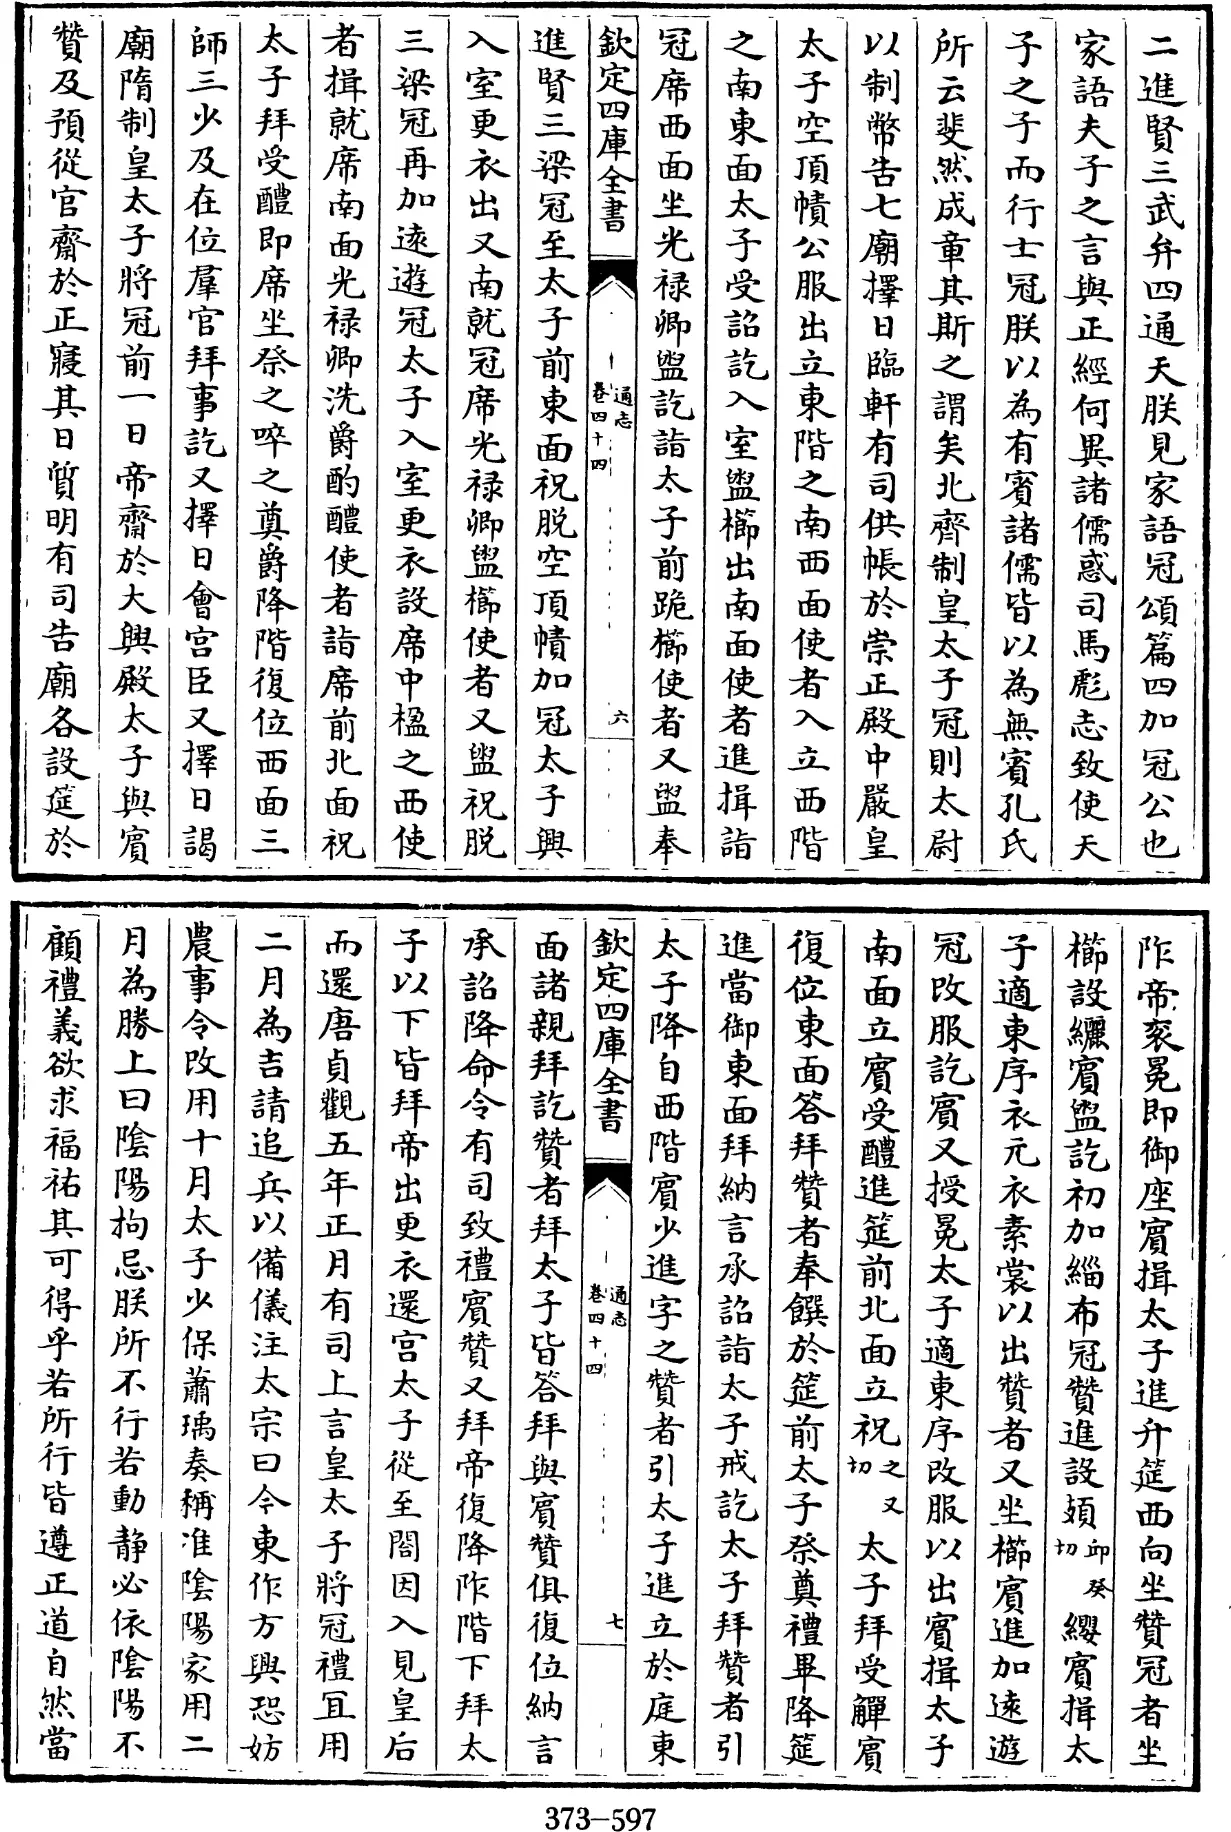 二進賢三武弁四通天朕見家語冠頌篇四加冠公也
家語夫子之言與正經何異諸儒惑司馬彪志致使天
子之子而行士冠朕以為有賓諸儒皆以為無賓孔氏
所云斐然成章其斯之謂矣北齊制皇太子冠則太尉
以制幣告七廟擇日臨軒有司供帳於崇正殿中嚴皇
太子空頂幘公服出立東階之南西面使者入立西階
之南東面太子受詔訖入室盥櫛出南面使者進揖詣
冠席西面坐光禄卿盥訖詣太子前跪櫛使者又盥奉
欽定四庫全書
通志
卷四十四
六
進賢三梁冠至太子前東面祝脱空頂幘加冠太子興
入室更衣出又南就冠席光禄卿盥櫛使者又盥祝脱
三梁冠再加遠遊冠太子入室更衣設席中楹之西使
者揖就席南面光禄卿洗爵酌醴使者詣席前北面祝
太子拜受醴即席坐祭之啐之奠爵降階復位西面三
師三少及在位羣官拜事訖又擇日會宫臣又擇日謁
廟隋制皇太子將冠前一日帝齋於大興殿太子與賓
贊及預從官齋於正寢其日質明有司告廟各設筵於
阼帝衮冕即御座賓揖太子進升筵西向坐贊冠者坐
櫛設纚賓盥訖初加緇布冠贊進設頍卭癸切纓賓揖太
子適東序衣元衣素裳以出贊者又坐櫛賓進加遠遊
冠改服訖賓又授冕太子適東序改服以出賓揖太子
南面立賓受醴進筵前北面立祝之又切太子拜受觶賓
復位東面答拜贊者奉饌於筵前太子祭奠禮畢降筵
進當御東面拜納言承詔詣太子戒訖太子拜贊者引
太子降自西階賓少進字之贊者引太子進立於庭東
欽定四庫全書
通志
卷四十四
七
面諸親拜訖贊者拜太子皆答拜與賓贊俱復位納言
承詔降命令有司致禮賓贊又拜帝復降阼階下拜太
子以下皆拜帝出更衣還宫太子從至閤因入見皇后
而還唐貞觀五年正月有司上言皇太子將冠禮宜用
二月為吉請追兵以備儀注太宗曰今東作方興恐妨
農事令改用十月太子少保蕭瑀奏稱准陰陽家用二
月為勝上曰陰陽拘忌朕所不行若動静必依陰陽不
顧禮義欲求福祐其可得乎若所行皆遵正道自然當
373-597